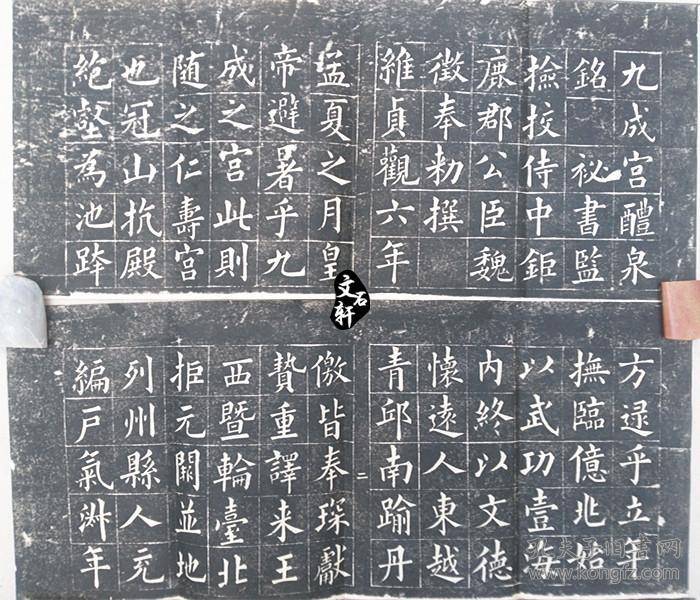 九成宫醴泉
銘 祕書監
撿挍侍中鉅
鹿郡公臣魏
徵奉勑撰
維貞觀六年
孟夏之月皇
帝避暑乎九
成之宫此則
随之仁壽宫
也冠山抗殿
絶壑為池跨
方逯乎立年
撫臨億兆始
以武功壹海
内終以文德
懷遠人東越
青邱南踰丹
儌皆奉琛獻
贄重譯来王
西暨輪臺北
拒元闕並地
列州縣人充
編戸氣淑年
二
文石軒
孔夫子旧书网
www.kongfz.com